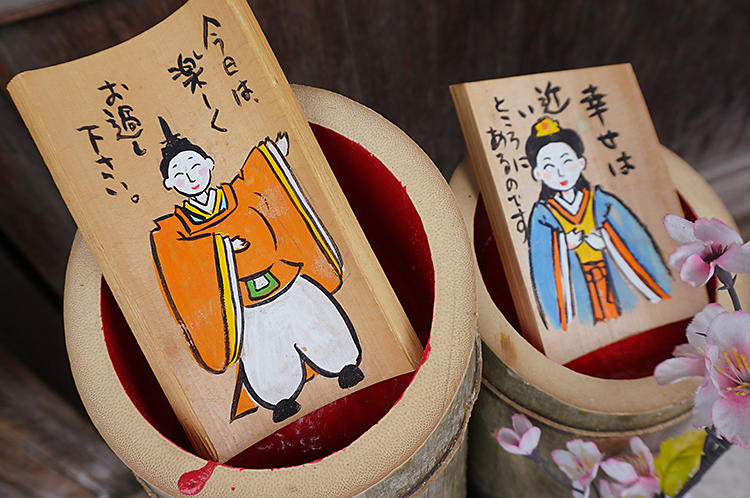 今日は、
楽しく
お過し
下さい。
幸せは
近い
ところに
あるのです